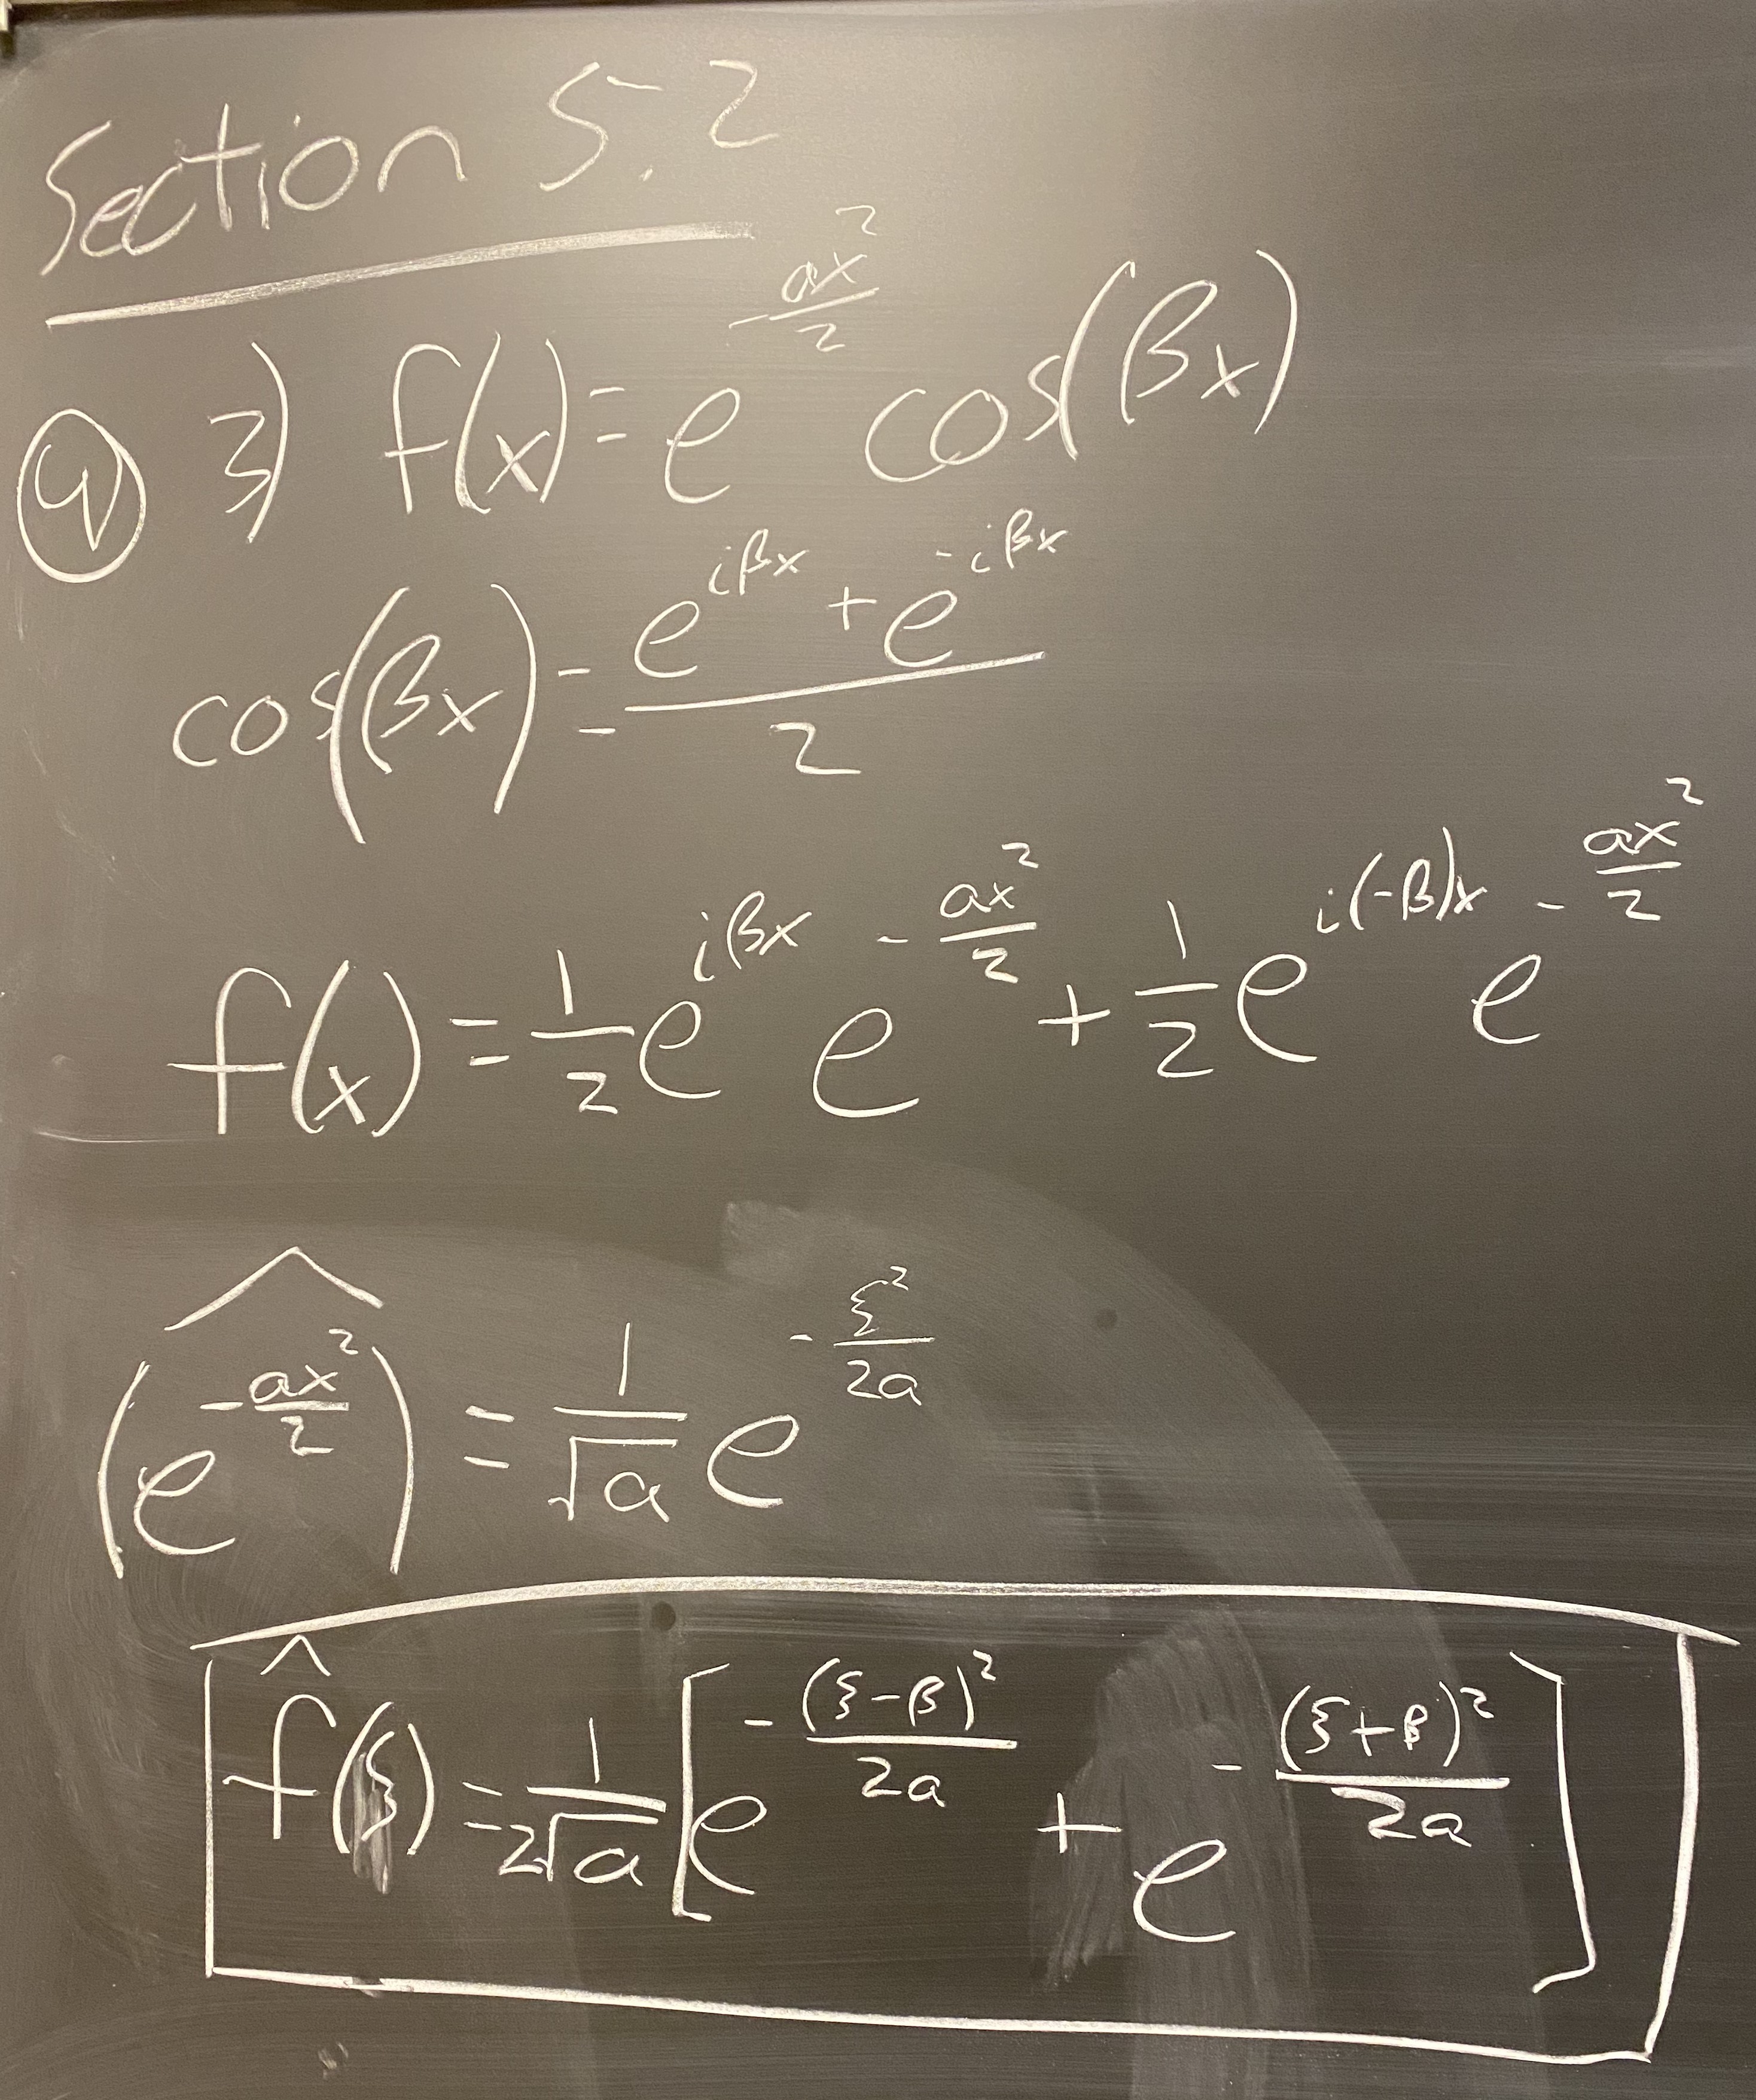 Section 5.2
④ 3) f(x) = e^{-\frac{ax^2}{2}} cos(βx)
cos(βx) = \frac{e^{iβx} + e^{-iβx}}{2}
f(x) = \frac{1}{2} e^{iβx} e^{-\frac{ax^2}{2}} + \frac{1}{2} e^{i(-β)x} e^{-\frac{ax^2}{2}}
\widehat{(e^{-\frac{ax^2}{2}})} = \frac{1}{\sqrt{a}} e^{-\frac{ξ^2}{2a}}
\hat{f}(ξ) = \frac{1}{2\sqrt{a}} [e^{-\frac{(ξ-β)^2}{2a}} + e^{-\frac{(ξ+β)^2}{2a}}]